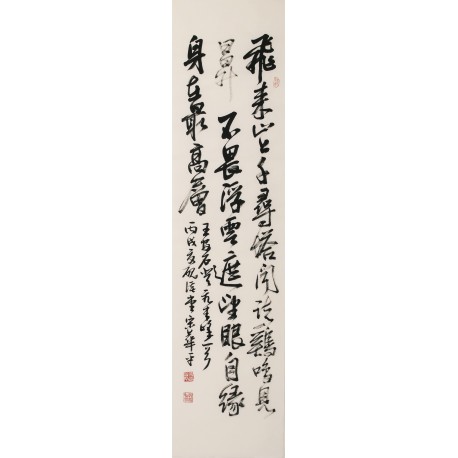 飛来山上千尋塔聞説鷄鳴見
日昇不畏浮雲遮望眼自緣
身在最高層
王安石登飛来峰一首
丙戌夏硯堂宋華平